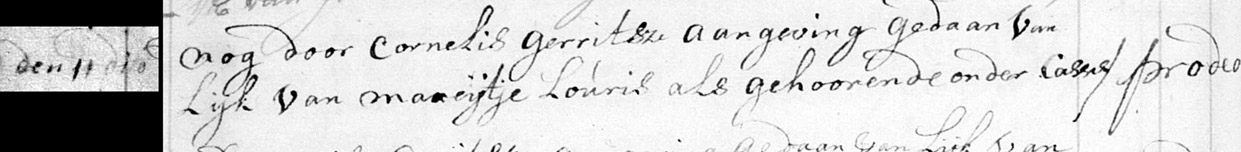 den 11 dito
nog door Cornelis Gerritsz aangeving gedaan van
Lijk van marijtje Louris als gehoorende onder Casus prodeo
gedaan van Lijk van